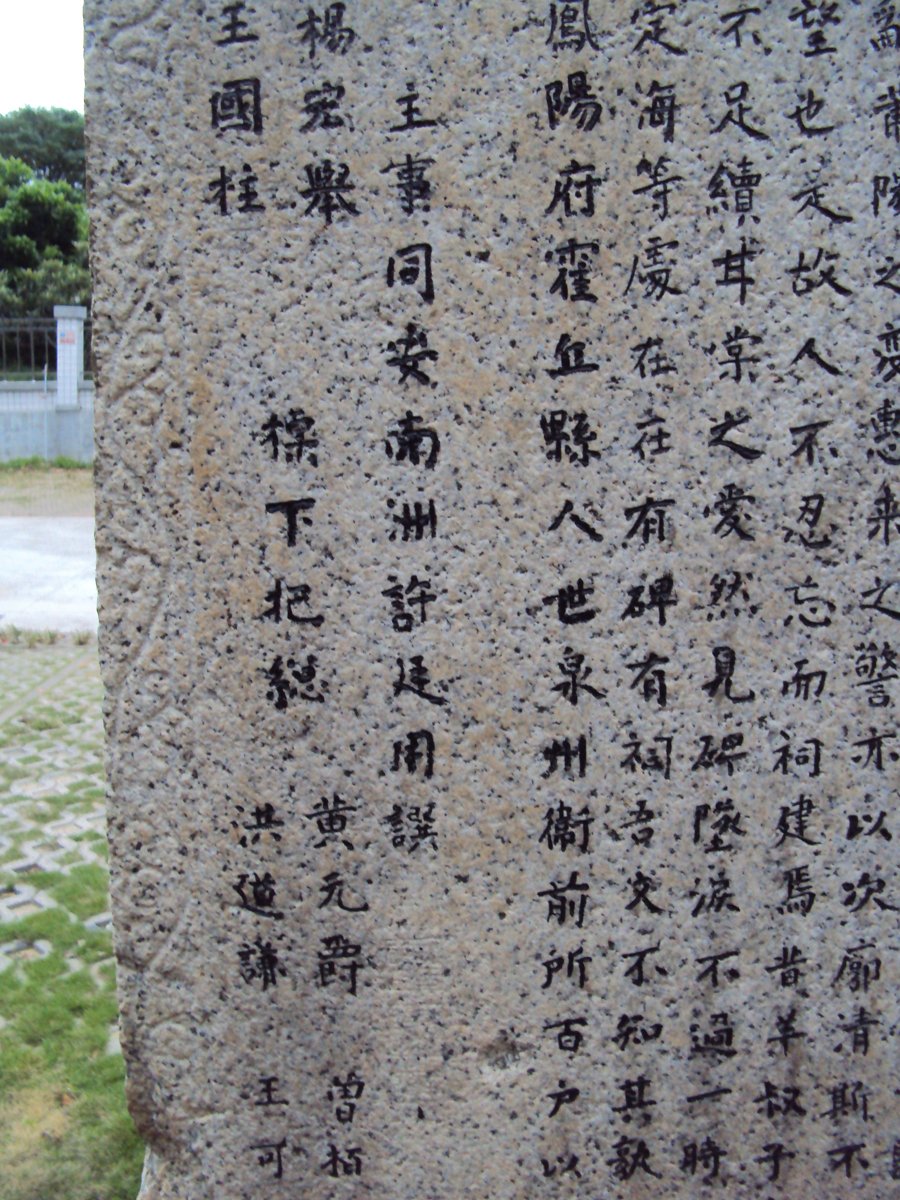 辭莆陽之變惠来之警亦以次廓清斯不
望也是故人不忍忘而祠建焉昔羊叔子
不足續甘棠之愛然見碑墜淚不過一時
定海等處在在有碑有祠吾文不知其孰
鳳陽府霍丘縣人世泉州衞前所百户以
主事同安南洲許廷用譔
楊宏舉
黄元爵
曽栢
王國柱
標下把緫
洪道謙
王可